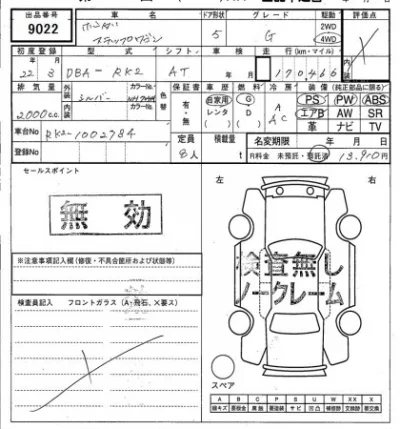 出品番号 車名 ドア形状 グレード 駆動 評価点
9022 ホンダ ステップワゴン 5 G 2WD 4WD
初度登録 型式 シフト 車検 走行(km・マイル) 内装
22年3月 DBA-RK2 AT 年 月 170,466
排気量 外装 シルバー カラーNo. 色替 保証書 車歴 燃料 冷房 装備(純正部品に限る)
2000cc 内装 カラーNo. 有・無 自家用 レンタ ( ) G D ( ) AC PS PW ABS
エアB AW SR
革 ナビ TV
車台No RK2-1002784 定員 積載量 名変期限 年 月 日
登録No 8人 t R料金 未預託・預託済 13,910円
セールスポイント 左 右
無効
検査無し
ノークレーム
※注意事項記入欄(修復・不具合箇所および状態等)
検査員記入 フロントガラス(A・飛石、X要ス)
スペア
A B C P S U W X XX
線キズ 要板金 腐蝕 要塗装 サビ 凹凸 補修跡 交換跡 要交換